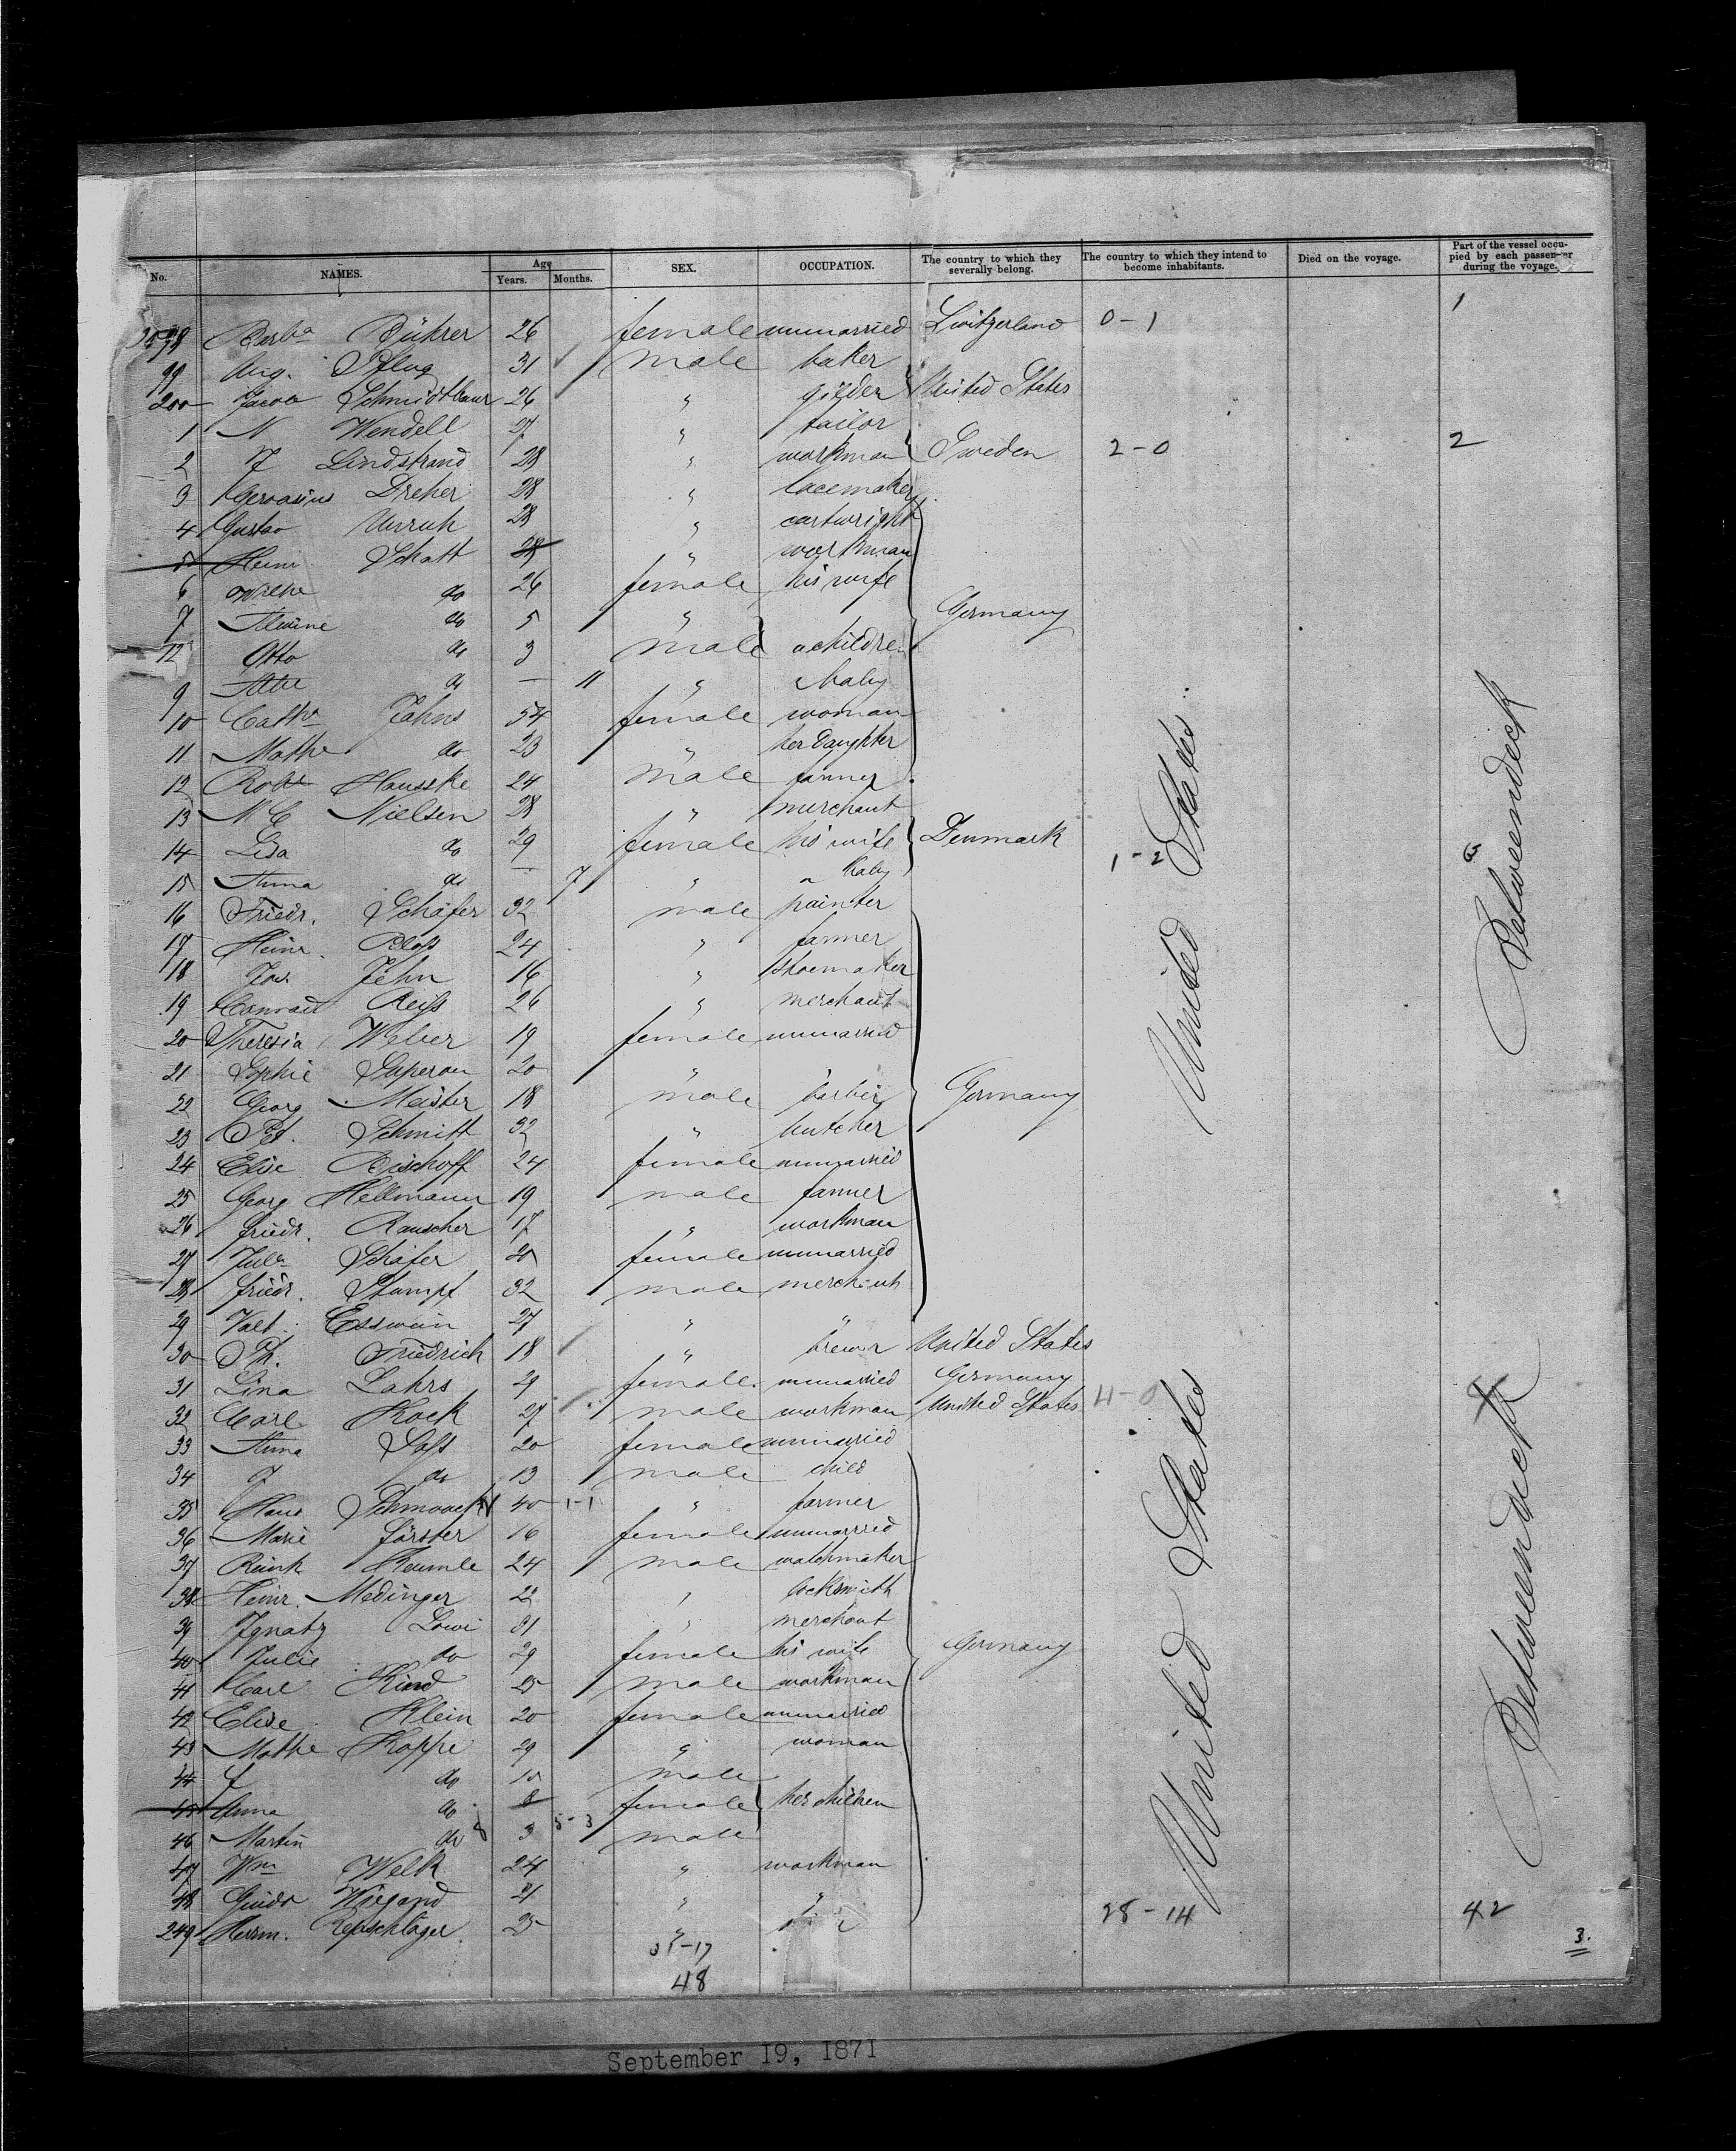 No. NAMES. Age Years. Months. SEX. OCCUPATION. The country to which they severally belong. The country to which they intend to become inhabitants. Died on the voyage. Part of the vessel occupied by each passenger during the voyage.
1
98 Barba Bührer 26 female unmarried Switzerland 0-1
99 Aug. Pflug 31 male baker
200 Jacob Schmidtbaur 26 " gilder United States
1 N Wendell 27 " tailor
2 F Lindstrand 28 " workman Sweden 2-0 2
3 Gervasius Dreher 28 " lacemaker
4 Gustav Unruh 28 " cartwright
5 Heinr Schatt 28 " workman
6 Wilhe do 26 female his wife
7 Alwine do 5 " Germany
12 Otto do 3 male children
9 do — 11 " a baby
10 Catha Jahns 54 female woman
11 Mathe do 23 " her daughter
12 Robt Hausske 24 male farmer
13 N C Nielsen 28 " merchant
14 Lisa do 29 female his wife Denmark 1-2 3
15 Anna do — 7 " a baby
16 Friedr. Schäfer 32 male painter
17 Heinr. Klop 24 " farmer
18 Jos. Jehn 16 " shoemaker
19 Conrad Reiß 26 " merchant
20 Theresia Weber 19 female unmarried
21 Sophie 20 " "
22 Georg Meister 18 male barber Germany
23 Pet. Schmitt 32 " butcher
24 Elise Bischoff 24 female unmarried
25 Georg Hellmann 19 male farmer
26 Friedr. Rauscher 17 " workman
27 Jula Schäfer 20 female unmarried
28 Friedr. Stumpf 32 male merchant
29 Valt. Esswein 27 " "
30 Ph. Friedrich 18 " brewer United States
31 Lina Lahrs 29 female unmarried Germany
32 Carl Kock 27 male workman United States 4-0 4
33 Anna Saß 20 female unmarried
34 J do 13 male child
35 Hans Schmaack 40 1-1 " farmer
36 Marie Förster 16 female unmarried
37 Reinh Keumle 24 male watchmaker
38 Heinr. Medinger 22 " locksmith
39 Ignatz Lowi 31 " merchant
40 Julie do 29 female his wife Germany
41 Carl Kind 25 male workman
42 Elise Klein 20 female unmarried
43 Mathe Koppe 29 " woman
44 do 10 male
45 Anna do 8 female her children
46 Martin do 3 5-3 male
47 Wm Welk 24 " workman
48 Guido Wiegand 21 " "
249 Herrm. Repschläger 25 "
28-14 42
United States
United States
Betweendeck
Betweendeck
-17
48
3.
September 19, 1871